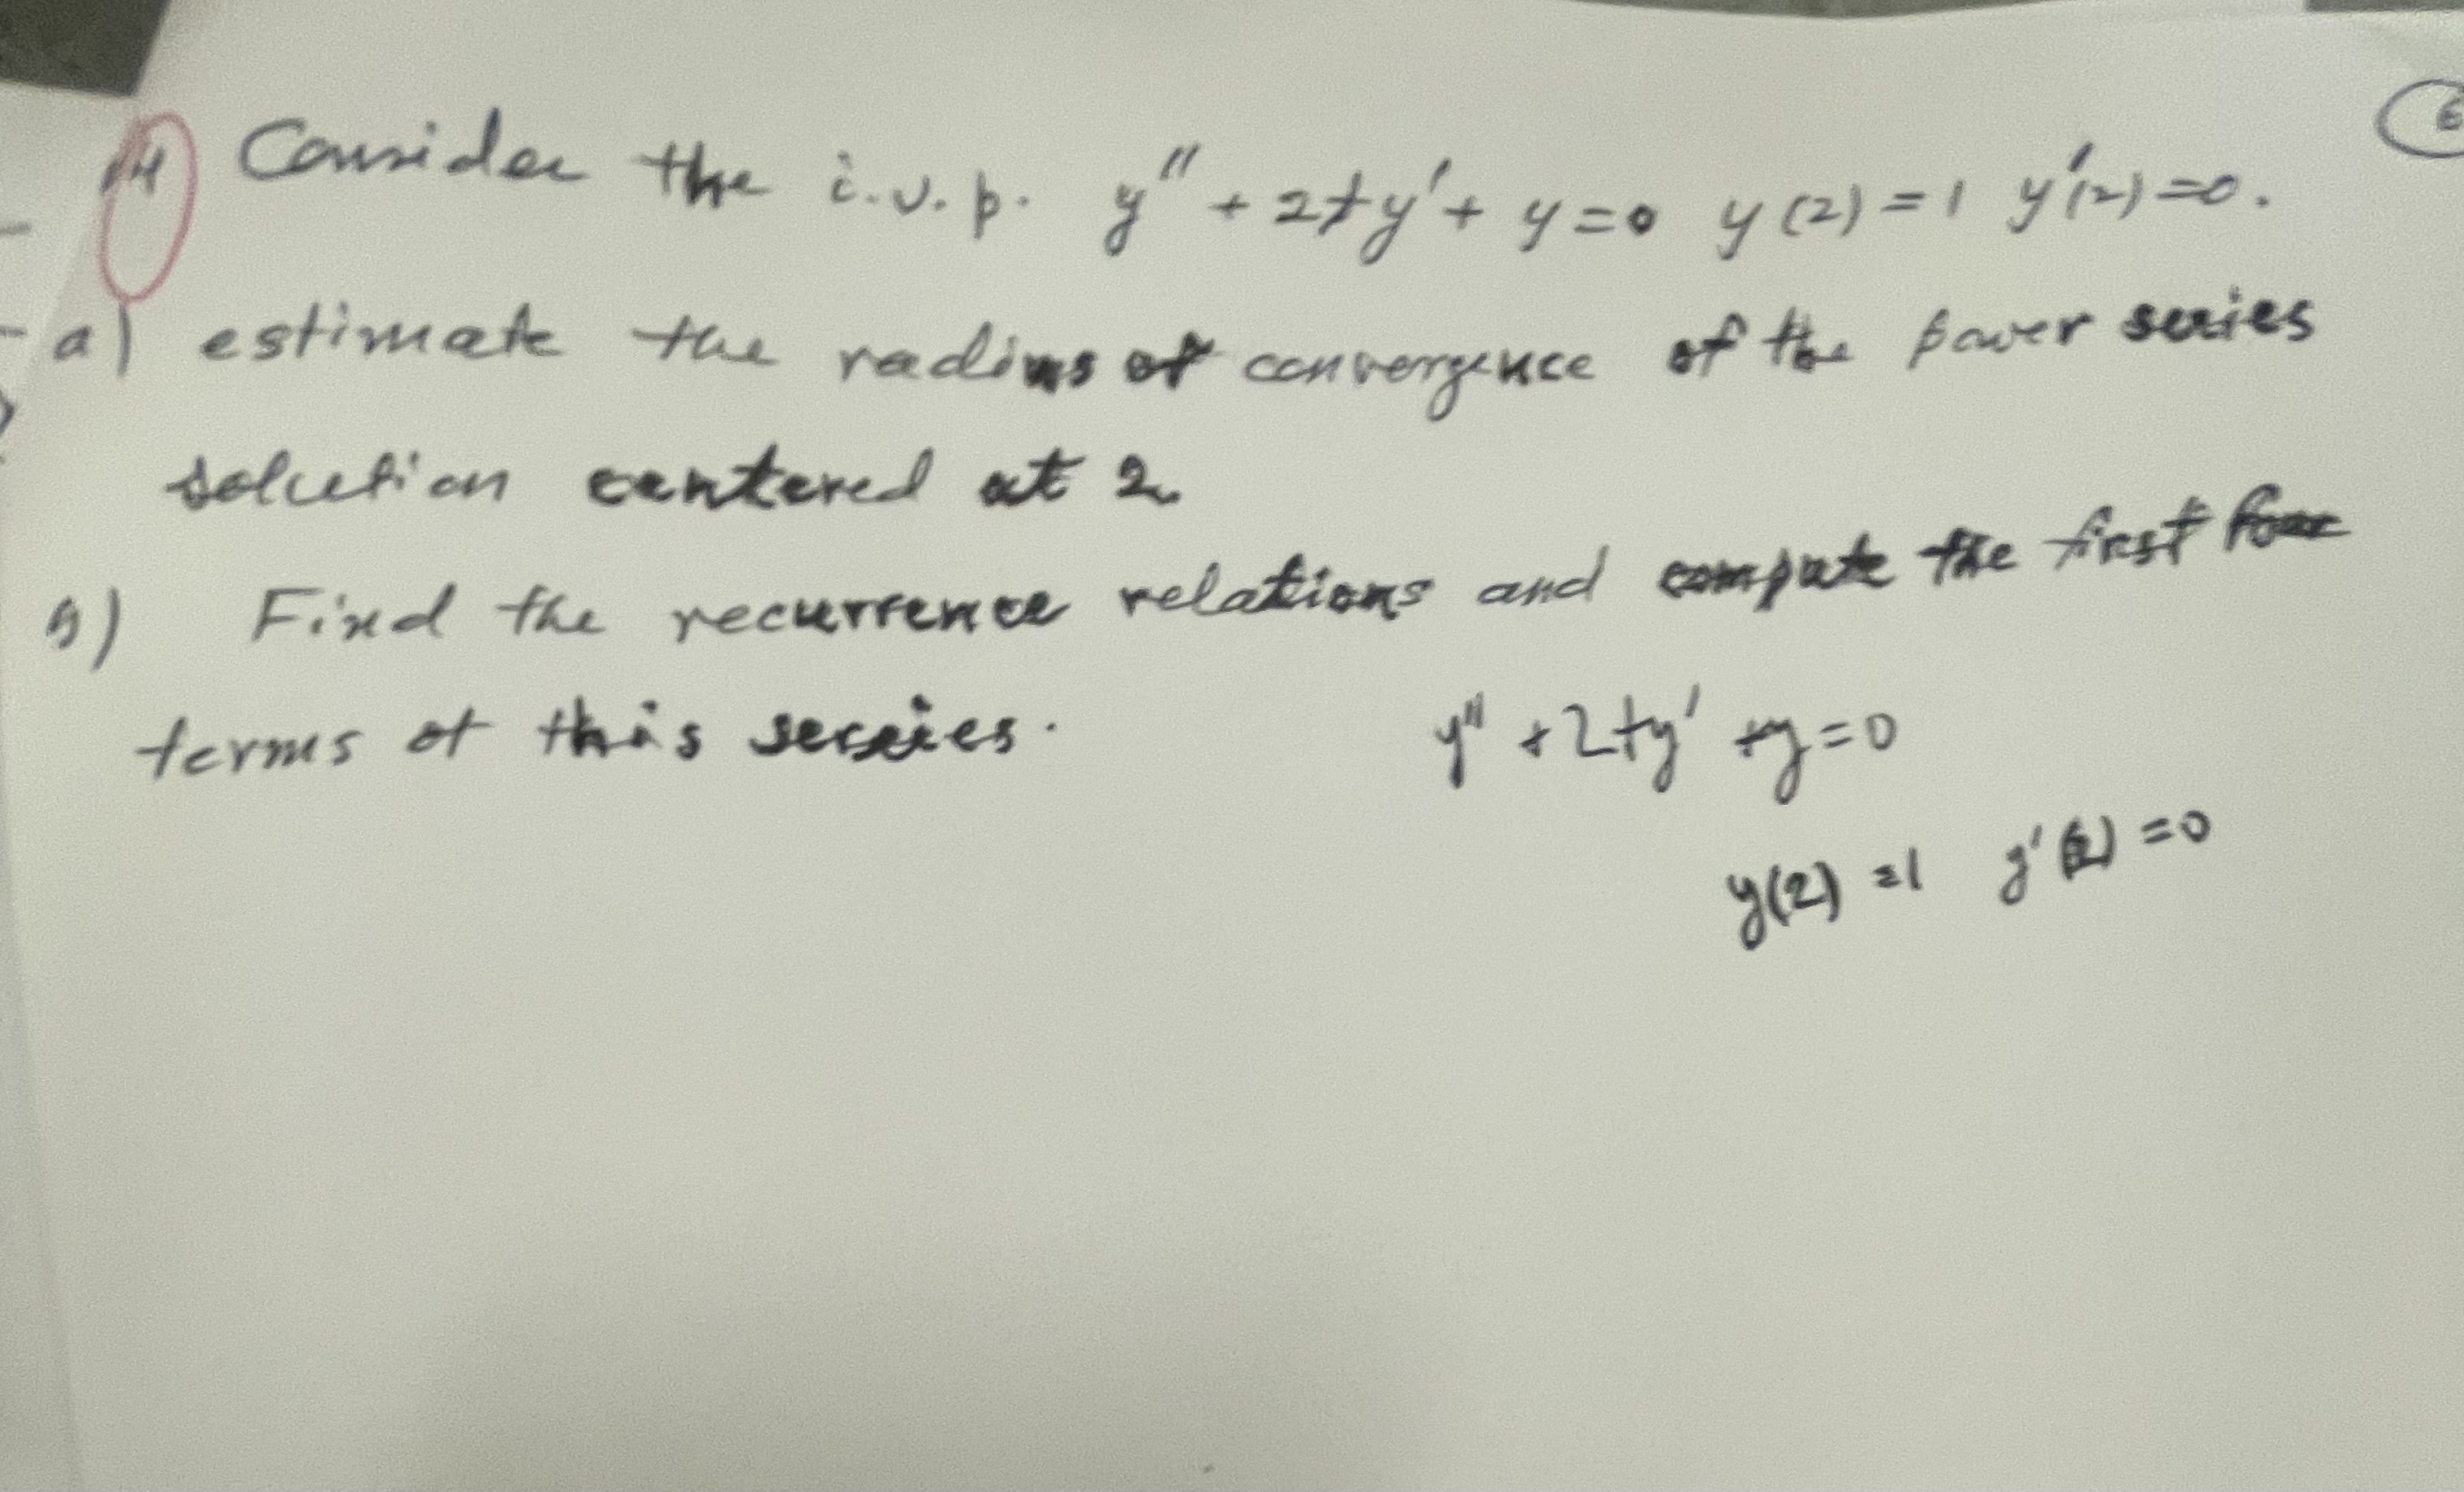 14 Consider the i.v.p. y" + 2ty' + y = 0 y(2) = 1 y'(2) = 0.
a) estimate the radius of convergence of the power series
solution centered at 2.
b) Find the recurrence relations and compute the first four
terms of this series.
y" + 2ty' + y = 0
y(2) = 1 y'(2) = 0